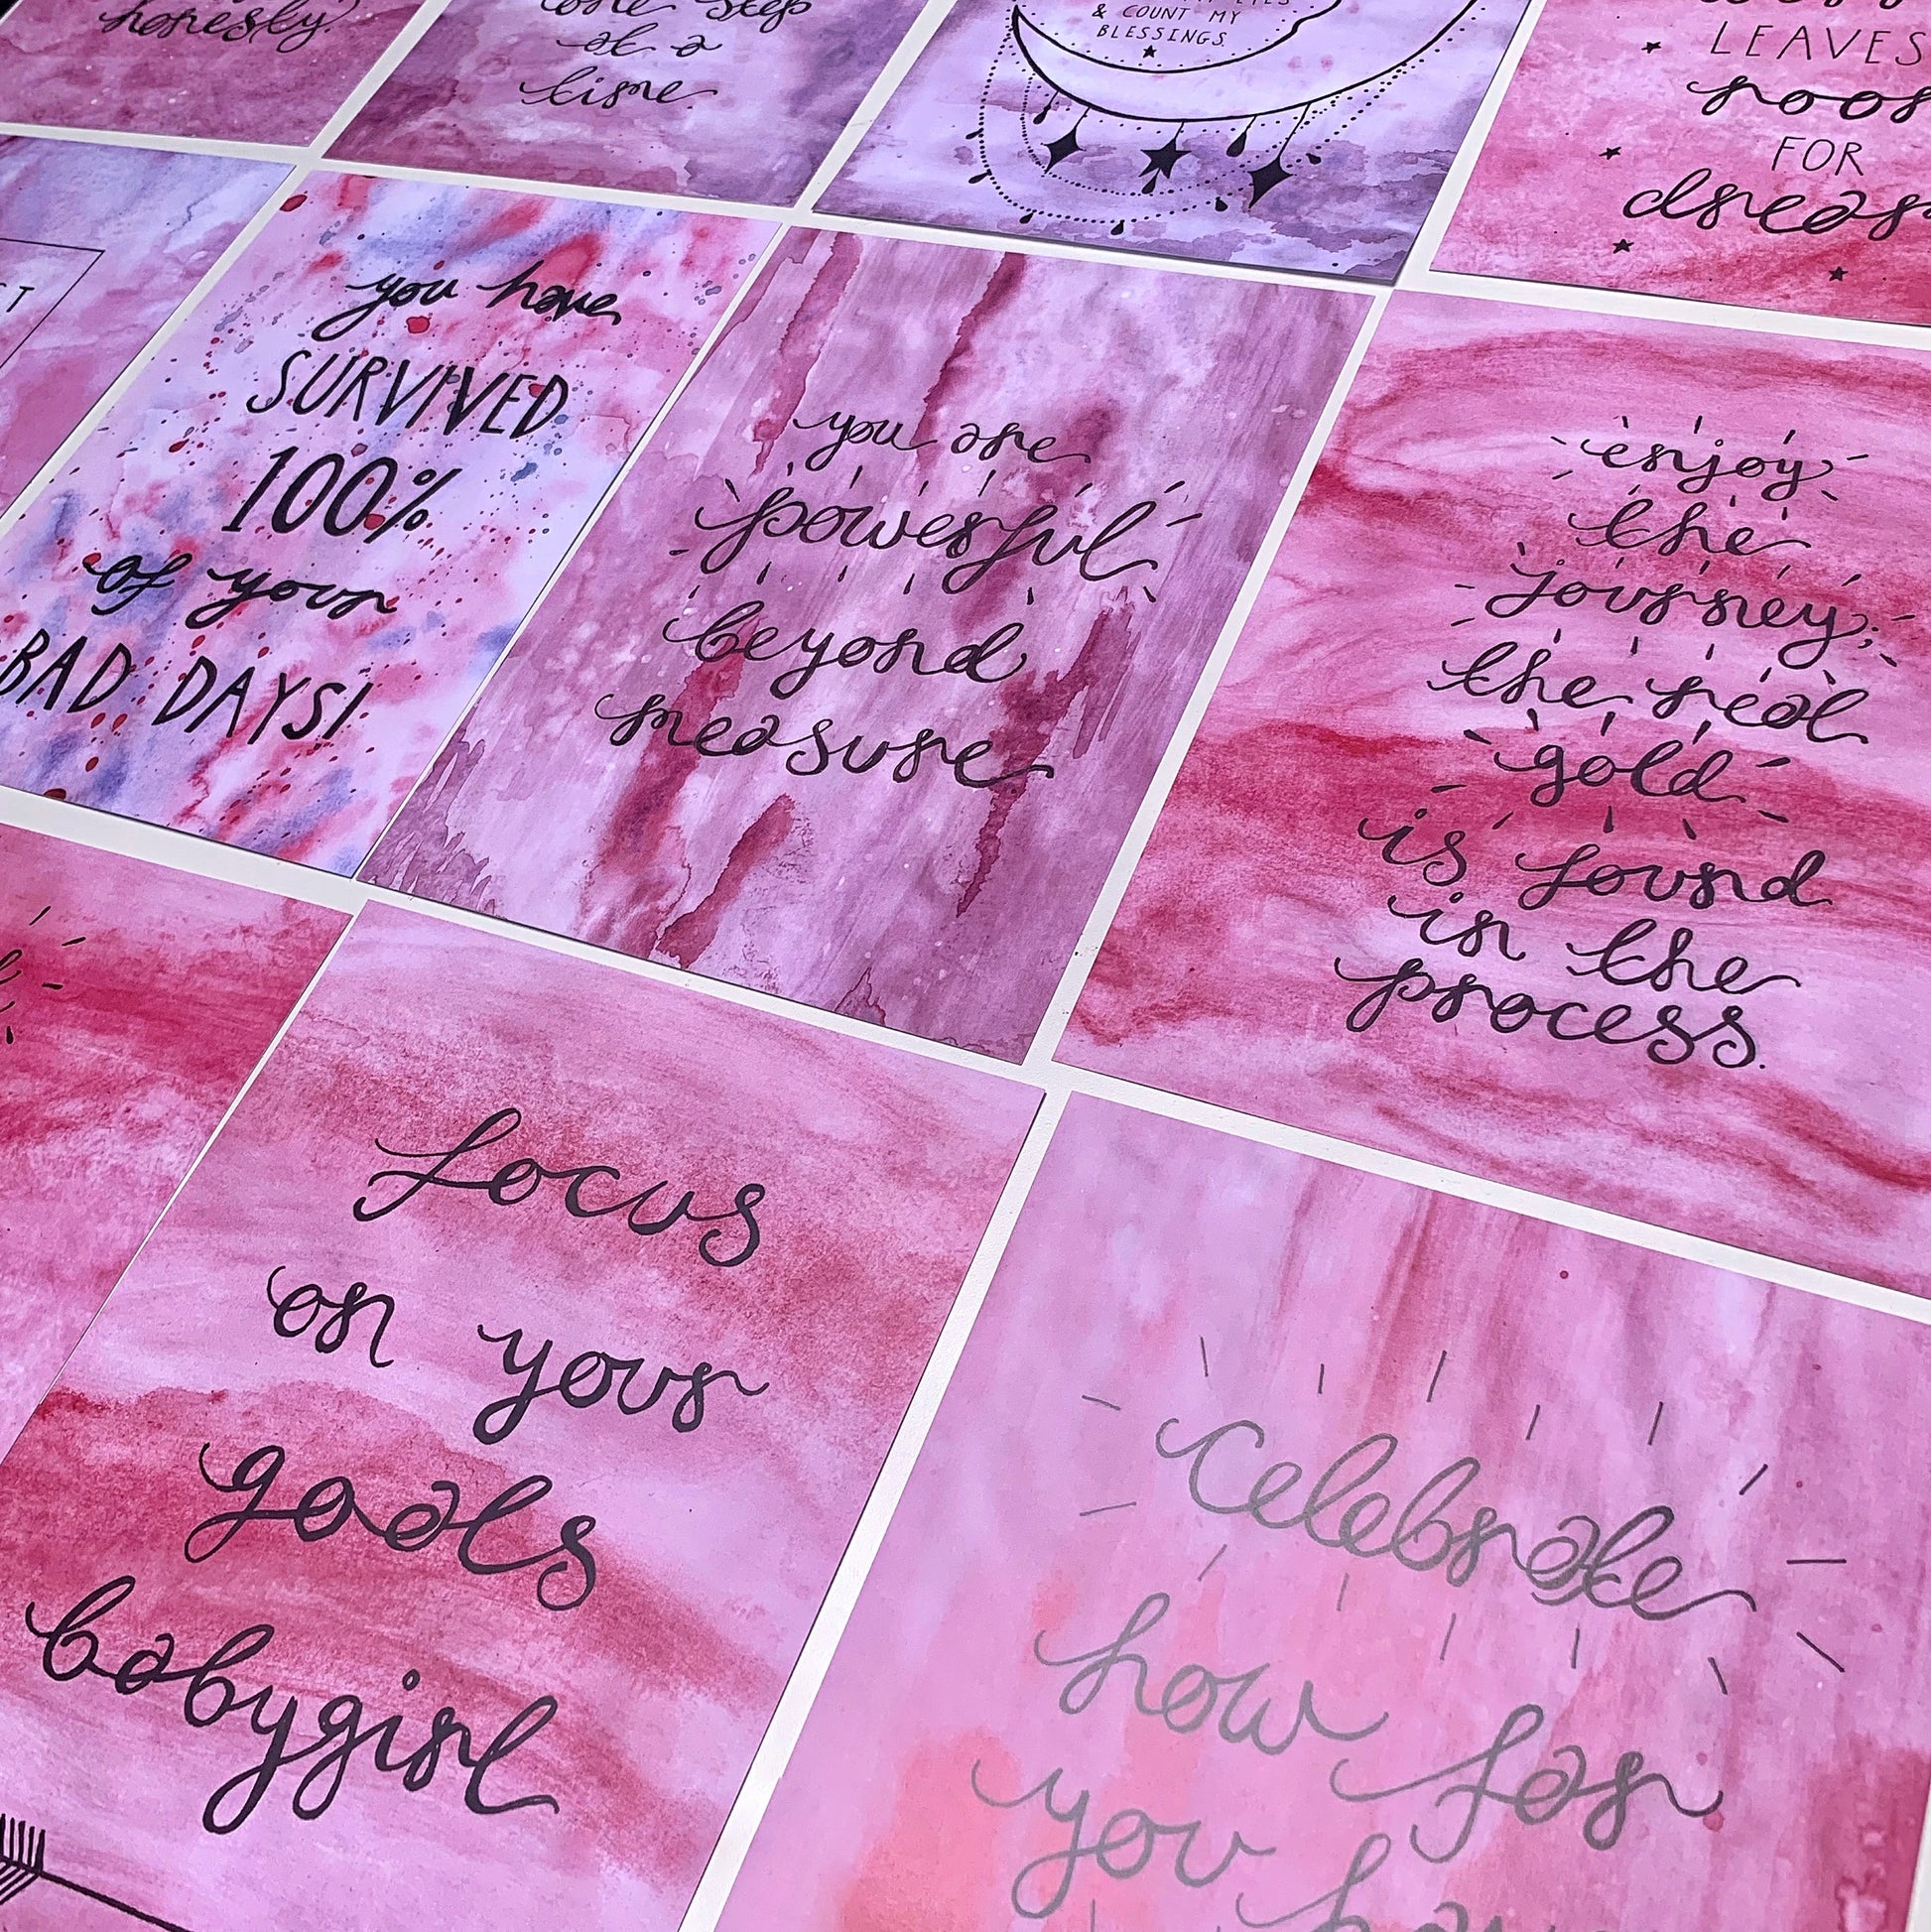 honestly.
one step
at a
time.
& COUNT MY
BLESSINGS.
LEAVES
FOR
you have
SURVIVED
100%
of your
BAD DAYS!
you are
powerful
beyond
measure.
enjoy
the
journey;
the real
gold
is found
in the
process.
focus
on your
goals
babygirl
celebrate
how far
you have